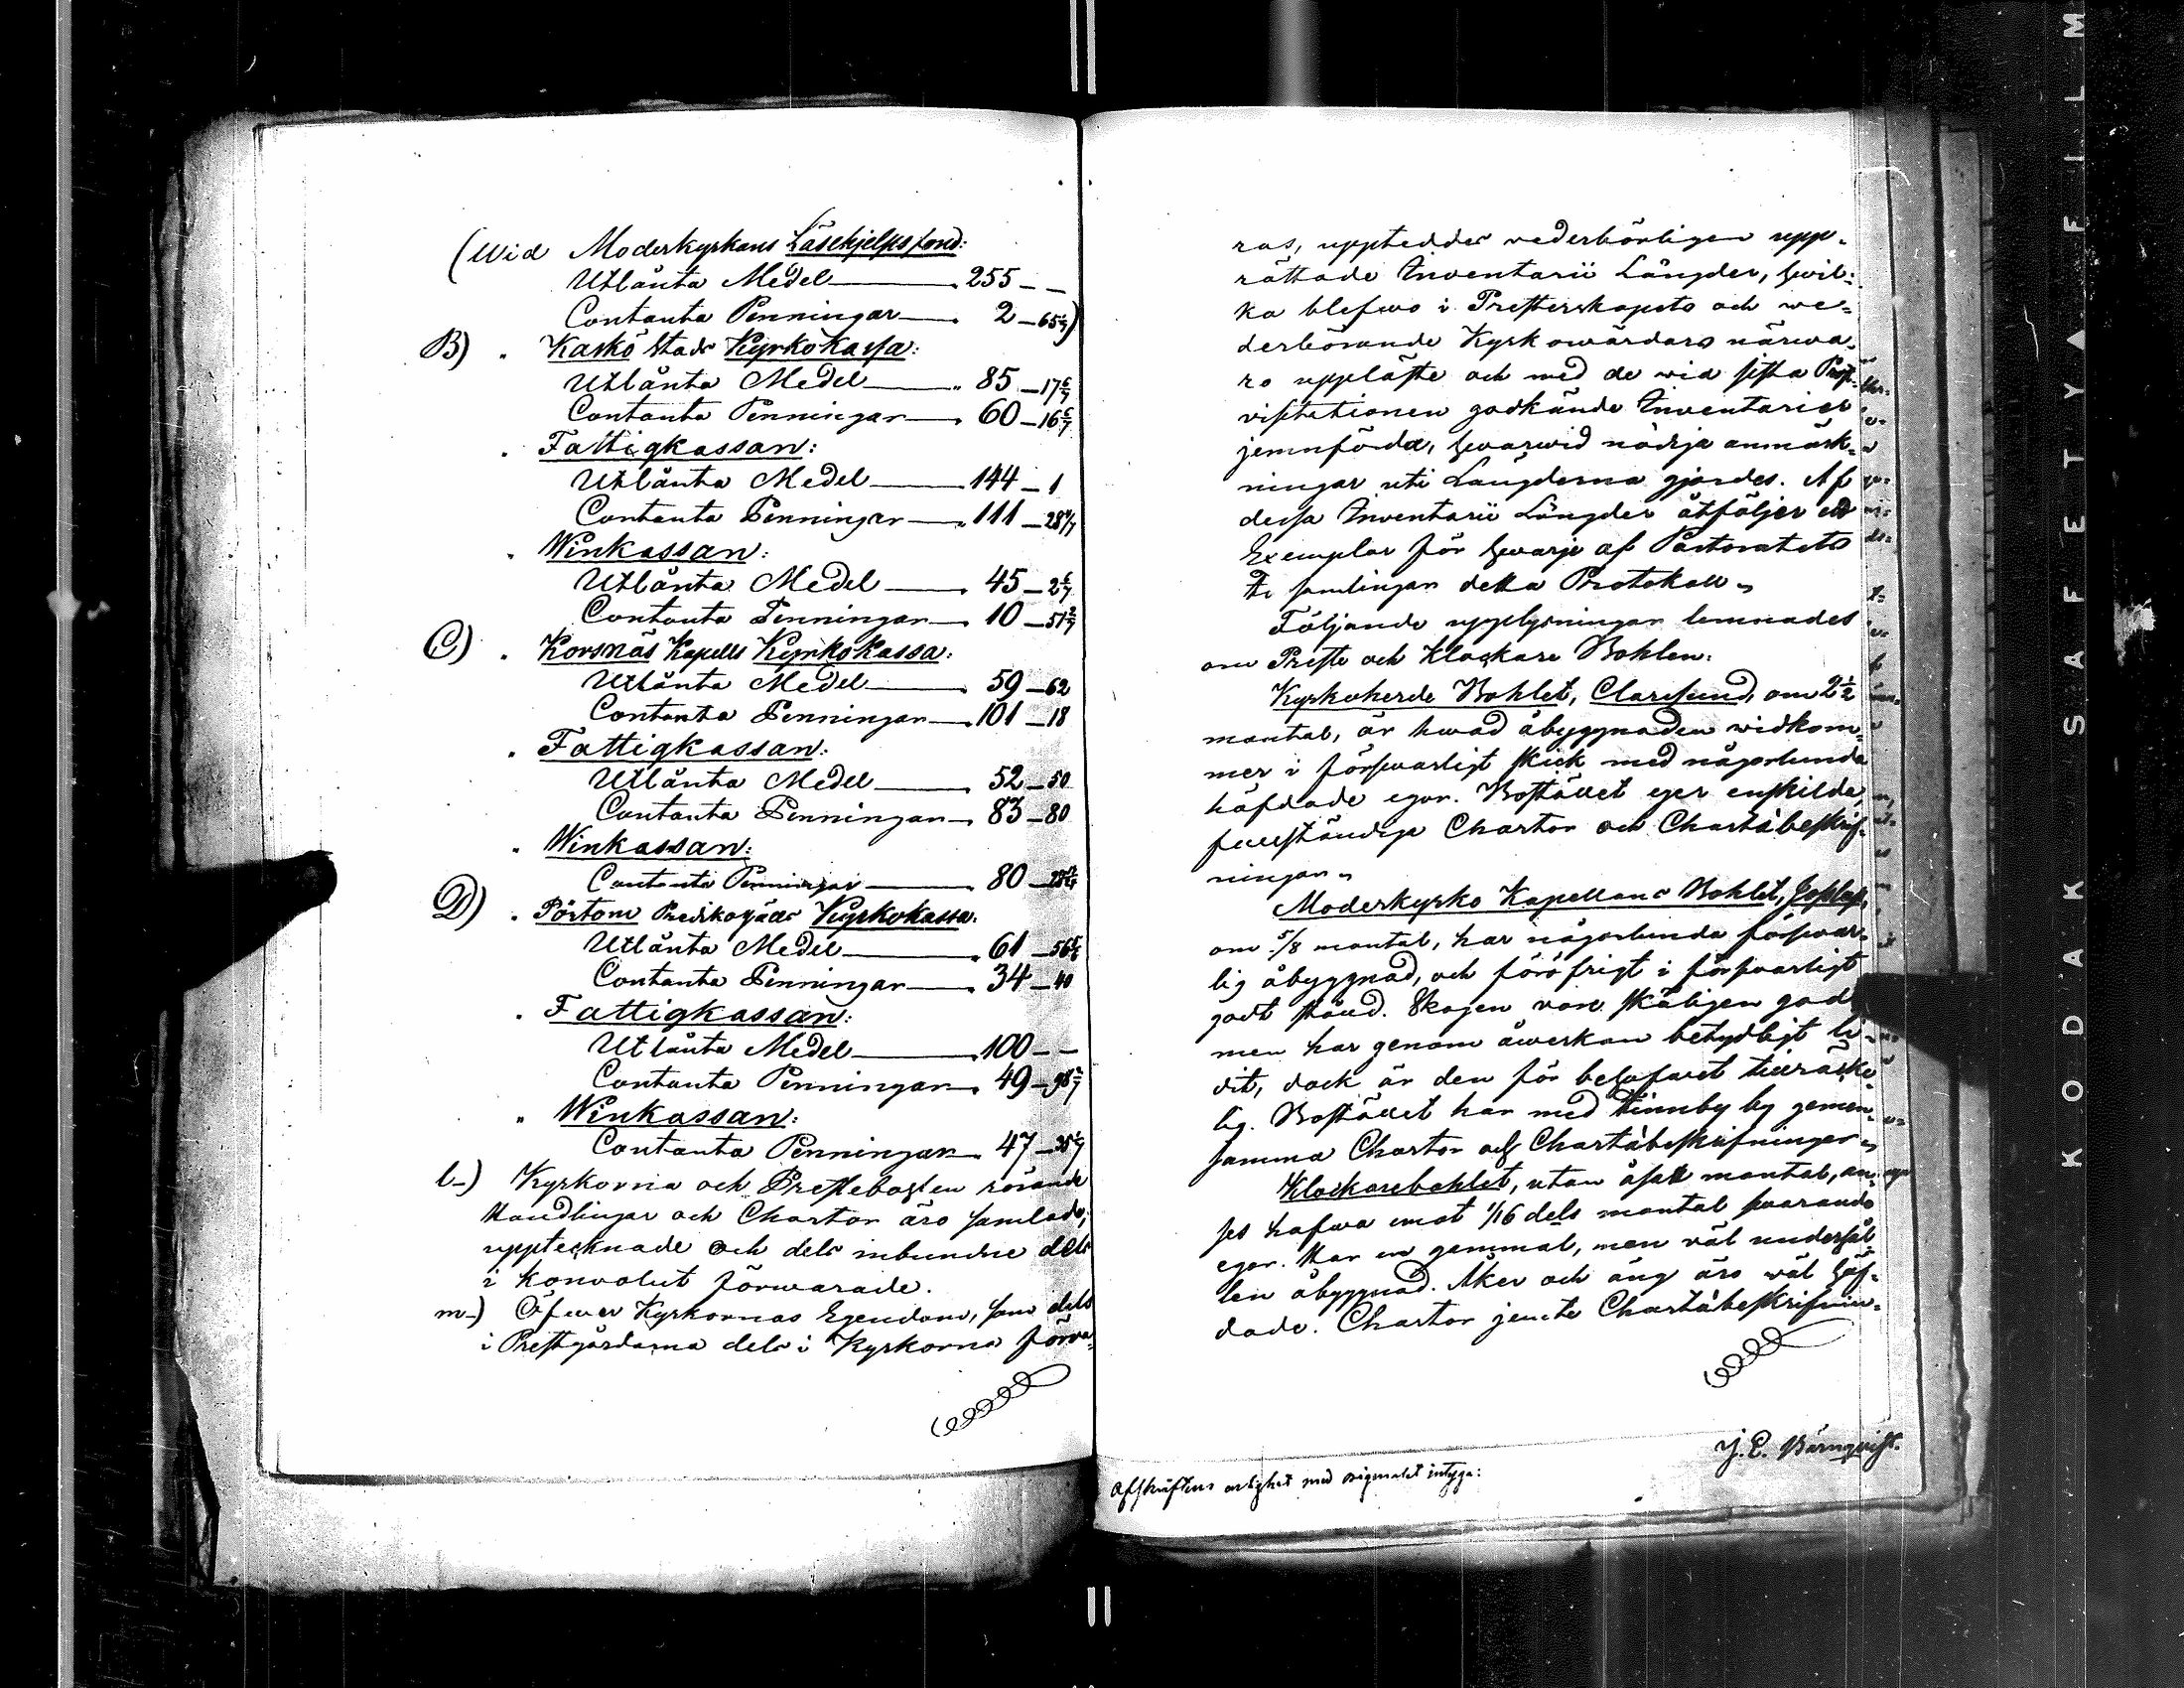 (Wid Moderkyrkans Läsehjelpsfond:
Utlånta Medel 255 – –
Contanta Penningar 2 – 65 5/7)
B) „ Kaskö Stads Kyrkokassa:
Utlånta Medel „ 85 – 17 6/7
Contanta Penningar 60 – 16 6/7
„ Fattigkassan:
Utlånta Medel 144 – 1
Contanta Penningar „ 111 – 28 4/7
„ Winkassan:
Utlånta Medel 45 – 2 6/7
Contanta Penningar 10 – 51 3/7
C) „ Korsnäs Kapells Kyrkokassa:
Utlånta Medel 59 – 62
Contanta Penningar 101 – 18
„ Fattigkassan:
Utlånta Medel 52 – 50
Contanta Penningar 83 – 80
„ Winkassan:
Contanta Penningar 80 –
D) „ Pörtom Predikogälls Kyrkokassa:
Utlånta Medel „ 61 –
Contanta Penningar „ 34 – 40
„ Fattigkassan:
Utlånta Medel 100 – –
Contanta Penningar 49 –
„ Winkassan:
Contanta Penningar 47 –
l-) Kyrkorna och Prestebohlen rörande
Handlingar och Chartor äro samlade,
upptecknade och dels inbundne dels
i konvolut förwarade.
m-) Öfwer Kyrkornas Egendom, som dels
i Prestgårdarna dels i Kyrkorna förwa-
ras, uppteddes vederbörligen upp-
rättade Inventarii Längder, hwil-
ka blefwo i Presterskapets och we-
derbörande Kyrkowärdars närwa-
ro uppläste och med de wid sista Prost-
visitationen godkände Inventarier
jemnförde, hwarwid nödige anmärk-
ningar uti Längderna gjordes. Af
dessa Inventarii Längder åtföljer ett
Exemplar för hwarje af Pastoratets
församlingar detta Protokoll „
Följande upplysningar lemnades
om Preste och Klockare Bohlen:
Kyrkoherde Bohlet, Clarsund, om 2 1/2
mantal, är hwad åbyggnaden widkom-
mer i försvarligt skick med någorlunda
häfdade egor. Bostället eger enskilde,
fullständige Chartor och Chartäbeskrif-
ningar „
Moderkyrko Kapellans Bohlet,
om 5/8 mantal, har någorlunda förswar-
lig åbyggnad, och föröfrigt i förswarligt
godt stånd. Skogen war skäligen god
men har genom åwerkan betydligt li-
dit, dock är den för behofwet tillräcke-
lig. Bostället har med Finnby by gemen-
samma Chartor och Chartäbeskrifningar „
Klockarebohlet, utan åsatt mantal, an-
ses hafwa emot 1/16 dels mantal swarande
egor. Har en gammal, men väl underhål-
len åbyggnad. Åker och äng äro wäl häf-
dade. Chartor jemte Chartäbeskrifnin-
J. E. Bärnqvist.
Afskriftens ordighet med originalet intyga:
K O D A K S A F E T Y F I L M